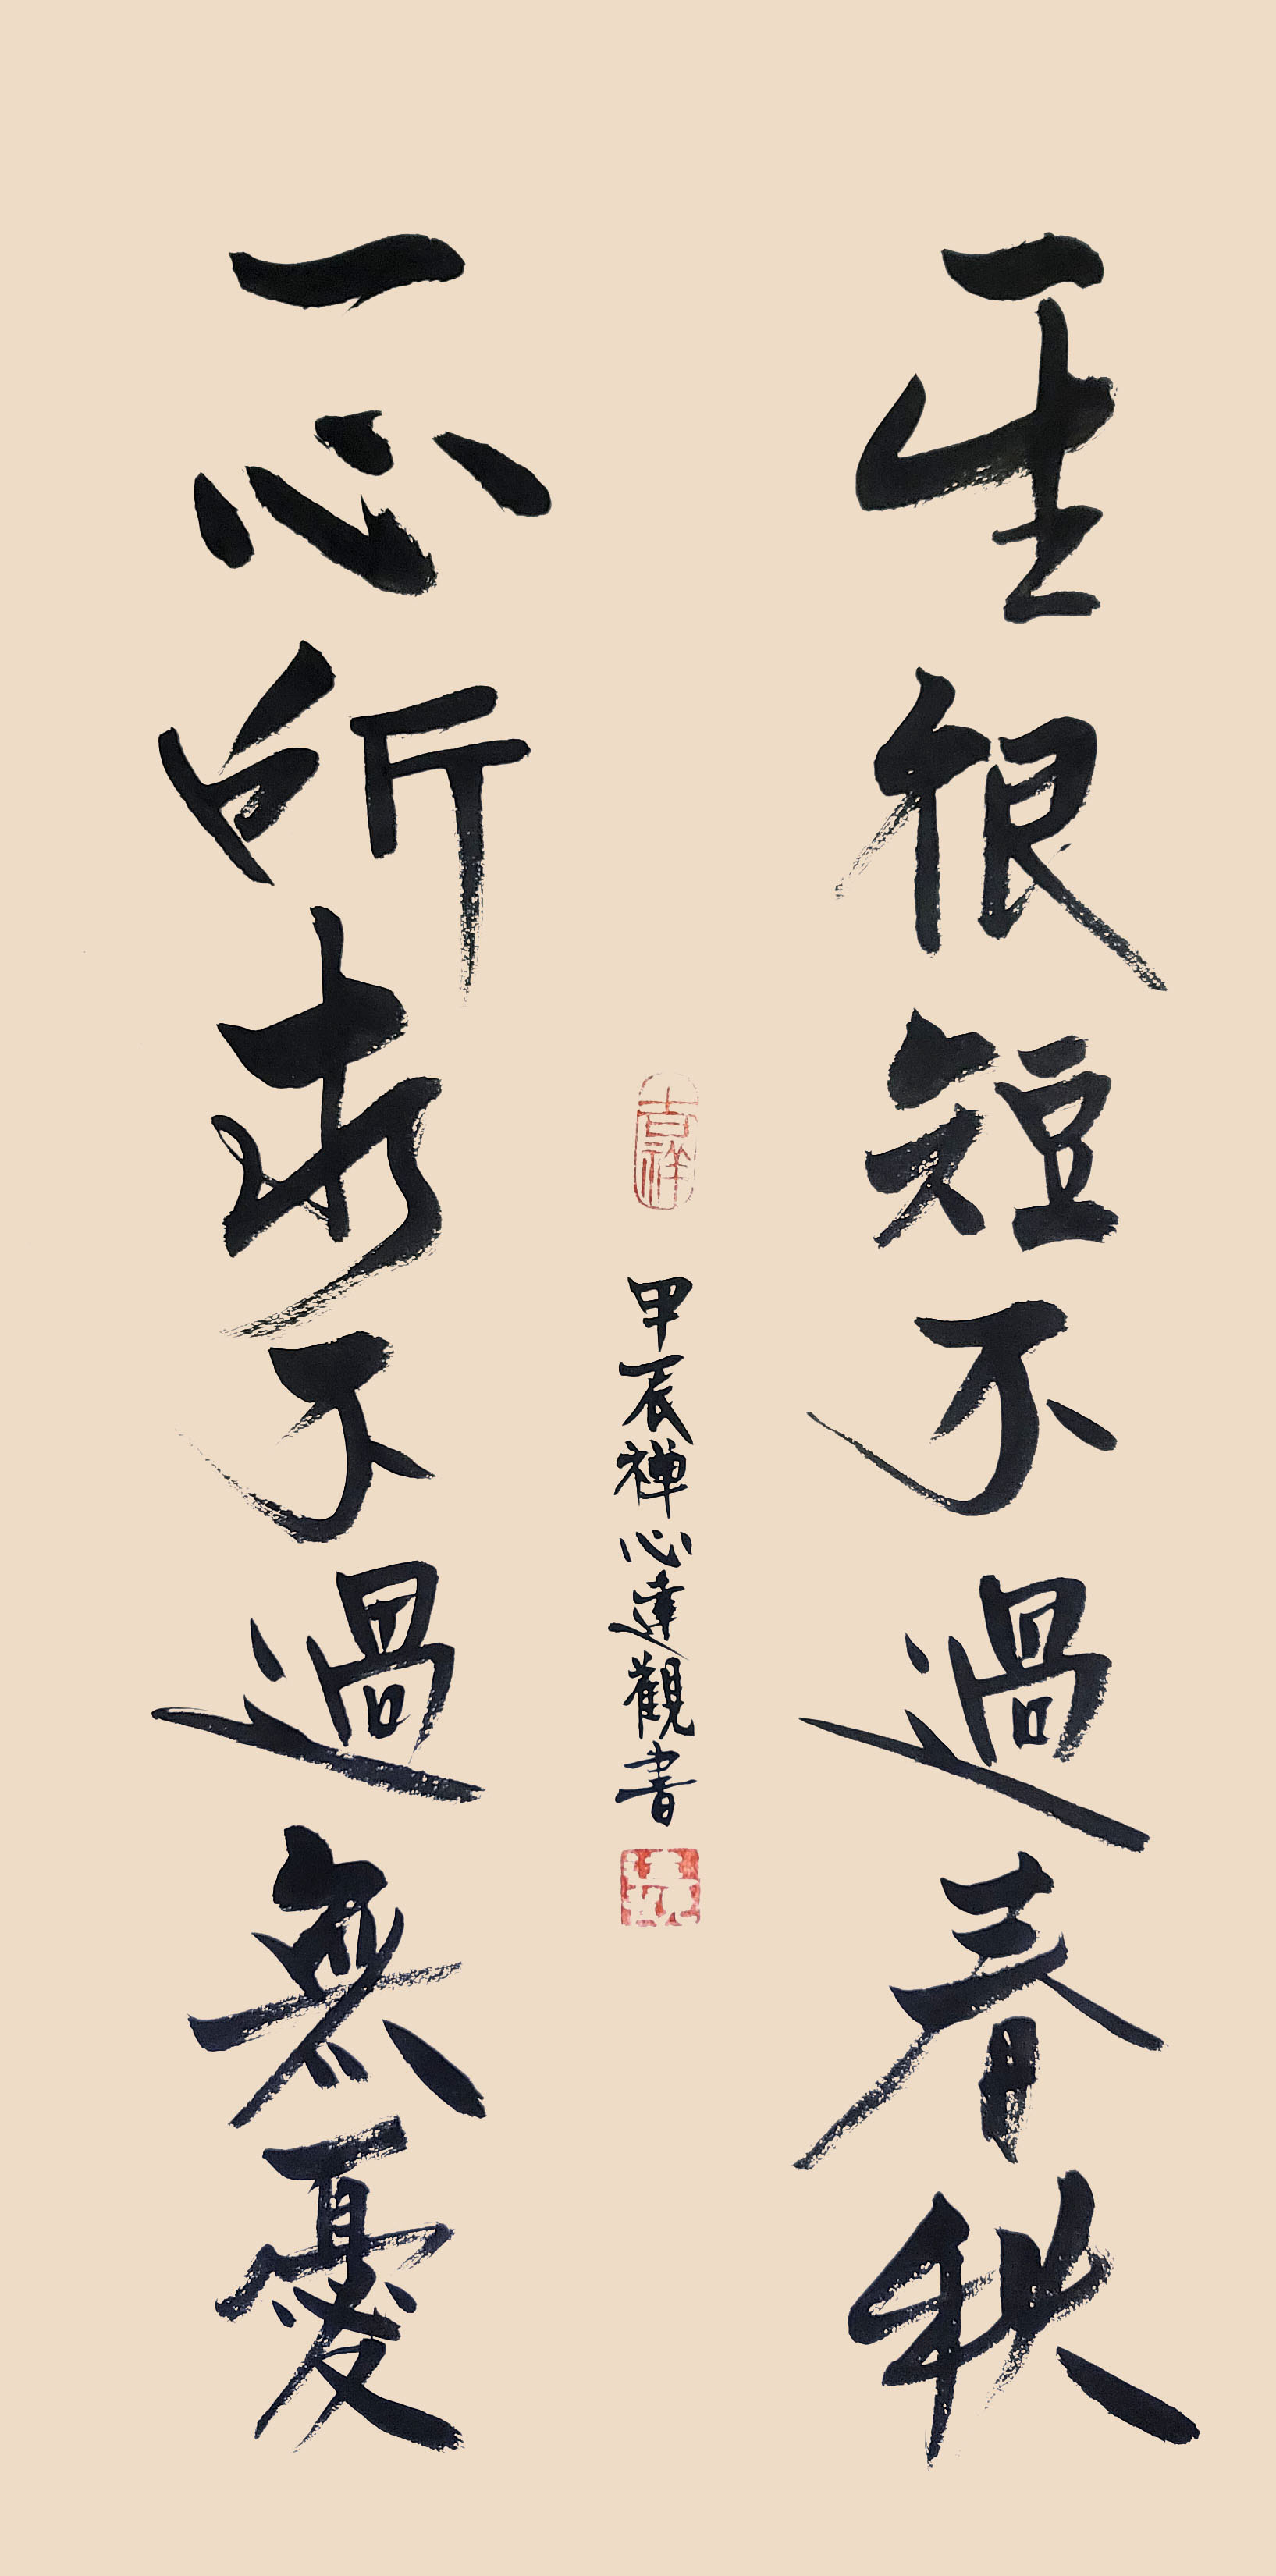 一生很短不過春秋
一心所求不過無憂
吉祥
甲辰禅心達觀書